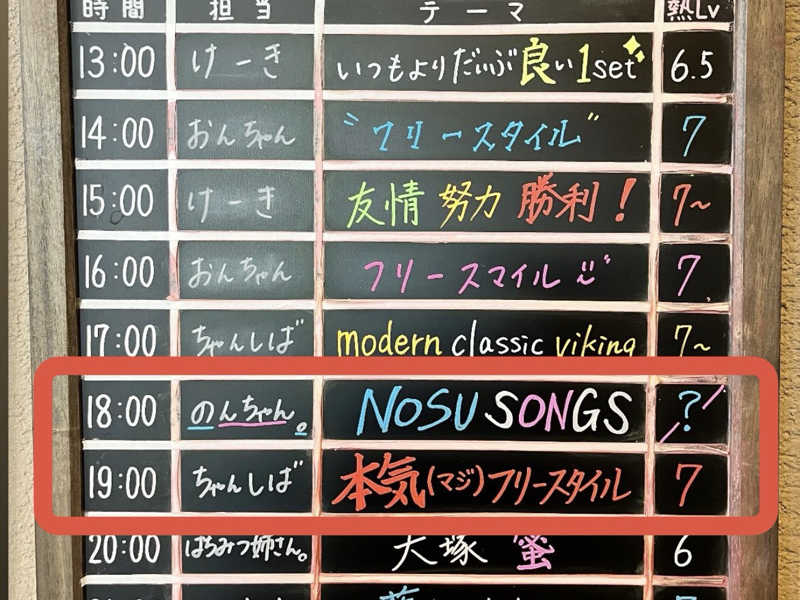 時間 担当 テーマ 熱Lv
13:00 けーき いつもよりだいぶ良い1set 6.5
14:00 おんちゃん "フリースタイル" 7
15:00 けーき 友情 努力 勝利! 7~
16:00 おんちゃん フリースマイル 7
17:00 ちゃんしば modern classic viking 7~
18:00 のんちゃん。 NOSU SONGS ?
19:00 ちゃんしば 本気(マジ)フリースタイル 7
20:00 はちみつ姉さん。 大塚 蜜 6